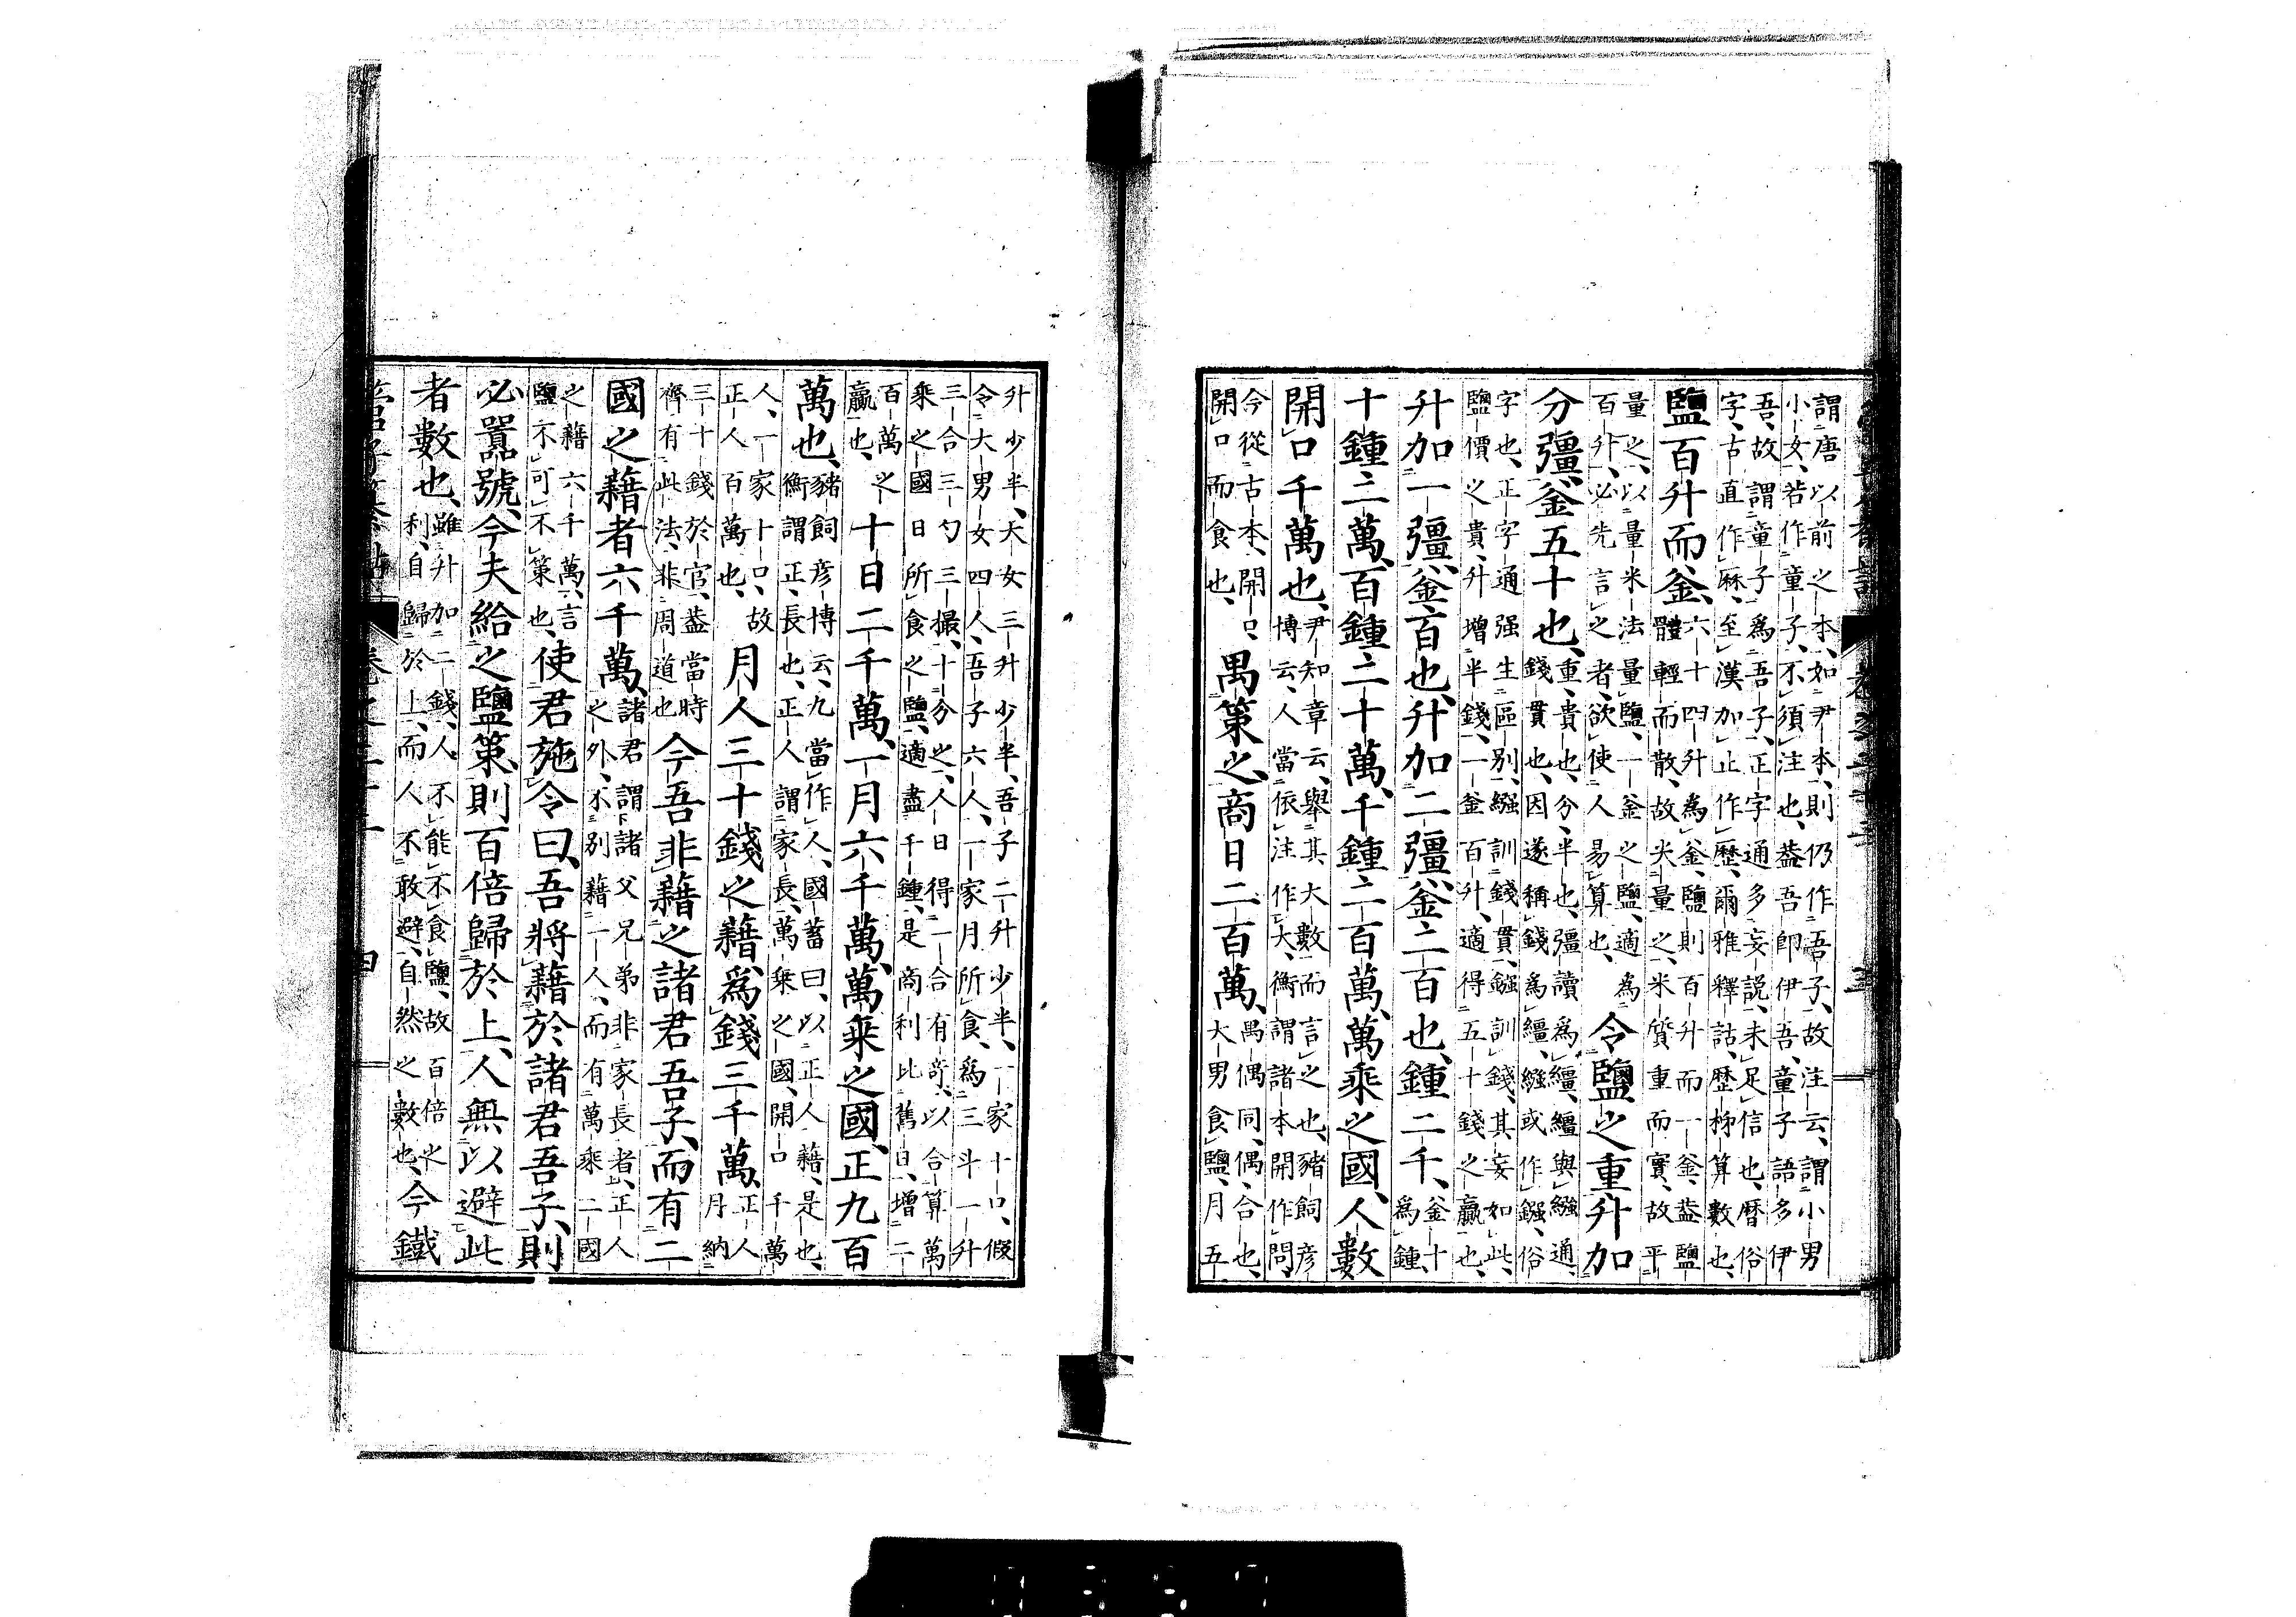 謂唐以前之本、如尹本、則仍作吾子、故注云、謂小男
小女、若作童子、不須注也、蓋吾卽伊吾、童子語多伊
吾、故謂童子爲吾子、正字通多妄說、未足信也、曆俗
字、古直作厤、至漢加止作歷、爾雅釋詁、歷秭算數也、
鹽百升而釜、六十四升爲釜、鹽則百升而一釜、蓋鹽
體輕而散、故尖量之、米質重而實、故平
量之、以量米法量鹽、一釜之鹽、適爲
百升、必先言之者、欲使人易算也、令鹽之重升加
分彊、釜五十也、重、貴也、分、半也、彊讀爲繮、繮與繦通、
錢貫也、因遂稱錢爲繮、繦或作鏹、俗
字也、正字通强生區別、繦訓錢貫、鏹訓錢、其妄如此、
鹽價之貴、升增半錢、一釜百升、適得五十錢之贏也、
升加一彊、釜百也、升加二彊、釜二百也、鍾二千、釜十爲鍾、
十鍾二萬、百鍾二十萬、千鍾二百萬、萬乘之國、人數
開口千萬也、尹知章云、舉其大數而言之也、豬飼彦
博云、人當依注作大、衡謂諸本開作問、
今從古本、開口、
開口而食也、禺策之、商日二百萬、禺偶同、偶、合也、
大男食鹽、月五
升少半、大女三升少半、吾子二升少半、一家十口、假
令大男女四人、吾子六人、一家月所食、爲三斗一升
三合三勺三撮、十分之、人日得一合有奇、以合算萬
乘之國日所食之鹽、適盡千鍾、是商利比舊日、增二
百萬之
贏也、十日二千萬、一月六千萬、萬乘之國、正九百
萬也、豬飼彦博云、九當作人、國蓄曰、以正人藉、是也、
衡謂正、長也、正人謂家長、萬乘之國、開口千萬
人、一家十口、故
正人百萬也、月人三十錢之藉、爲錢三千萬、正人
月納
三十錢於官、蓋當時
齊有此法、非周道也今吾非藉之諸君吾子、而有二
國之藉者六千萬、諸君謂諸父兄弟非家長者、正人
之外、不別藉一人、而有萬乘二國
之藉六千萬、言
鹽不可不策也、使君施令曰、吾將藉於諸君吾子、則
必囂號、今夫給之鹽策、則百倍歸於上、人無以避此
者數也、雖升加二錢、人不能不食鹽、故百倍之
利、自歸於上、而人不敢避、自然之數也、今鐵